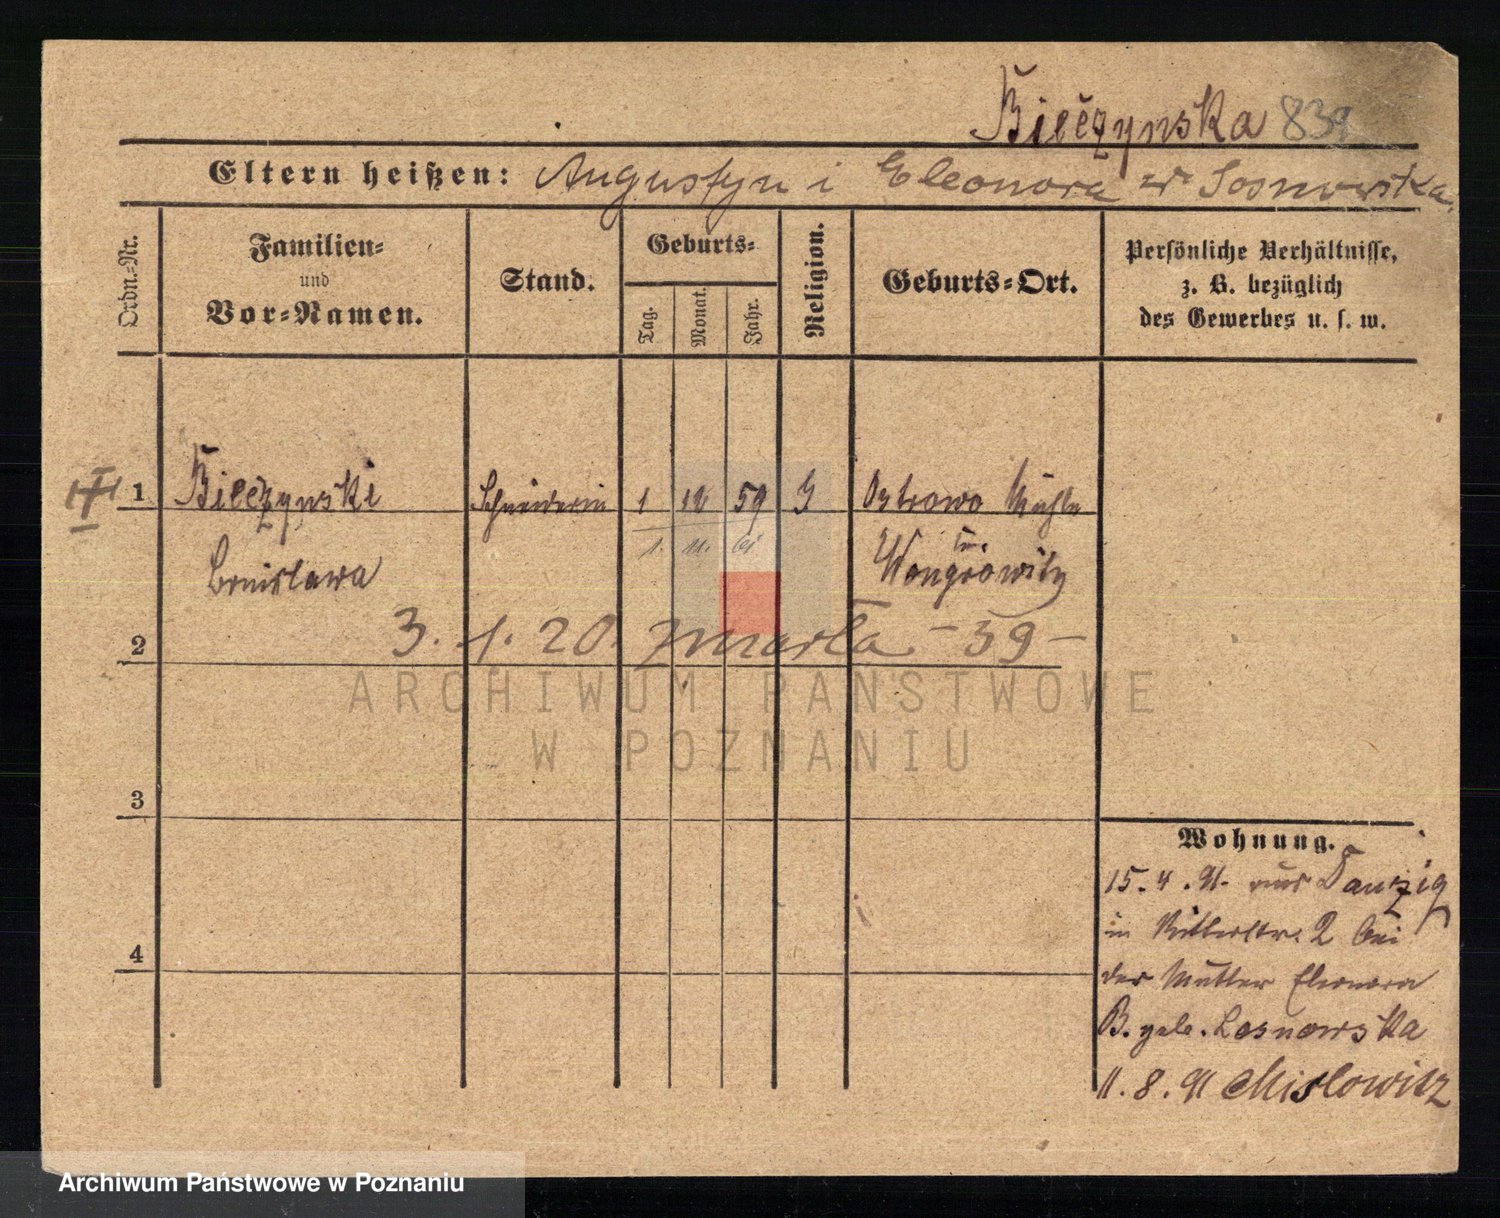 Bieczynska 839
Eltern heißen: Augustyn i Eleonora z Sosnowska
Ordn.-Nr.
Familien-
und
Vor-Namen.
Stand.
Geburts-
Tag.
Monat.
Jahr.
Religion.
Geburts-Ort.
Persönliche Verhältnisse,
z. B. bezüglich
des Gewerbes u. s. w.
1 Bieczynski Schneiderin 1 12 59 Ostrowo Mühle
1. 11. 61
Bronislawa Wongrowitz
2 3. 1. 20. zmarła - 59 -
ARCHIWUM PAŃSTWOWE
W POZNANIU
3
Wohnung.
15. 4. 91. aus Danzig
in Ritterstr. 2 bei
4
der Mutter Eleonora
B. geb. Losnowska
11. 8. 91 Mislowitz
Archiwum Państwowe w Poznaniu